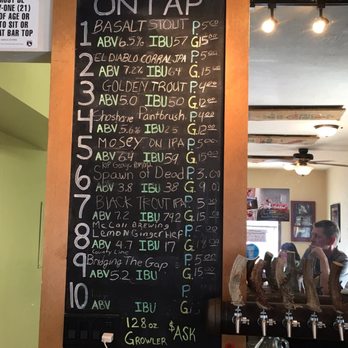 -ONE (21)
OF AGE OR
TO SIT OR
AT BAR TOP
ON TAP
1 BASALT STOUT P 5.00
ABV 6.5% IBU 57 G 15.00
2 EL DIABLO CORRAL IPA P 5.00
ABV 7.2% IBU 64 G
3 GOLDEN TROUT P 4.00
ABV 5.0 IBU 50 G 12.00
4 Shoshone Paintbrush P 4.00
ABV 5.6% IBU 25 G 12.00
5 MOSEY ON IPA P 5.00
ABV 6.4 IBU 59 G 15.00
6 Spawn of Dead P 3.00
ABV 3.8 IBU 38 G 9.0
7 BLACK TROUT IPA P 5.00
ABV 7.2 IBU 74.2 G 15.00
8 McCall BREWING
LEMON GINGER HEF P
ABV 4.7 IBU 17 G
9 Bridging The Gap P 5.00
ABV 5.2 IBU G 15.00
10 P
ABV IBU G
128 oz
GROWLER $ASK